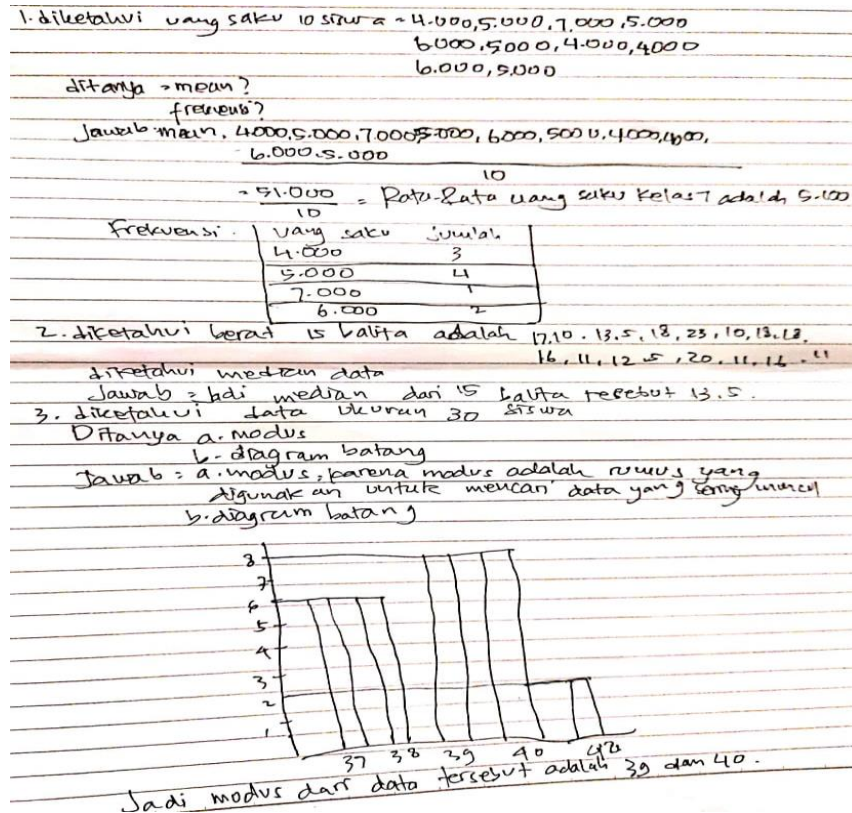 1. diketahui uang saku 10 siswa = 4.000, 5.000, 7.000, 5.000
6.000, 5000, 4.000, 4000
6.000, 5.000
ditanya = mean?
frekuensi?
Jawab mean, 4000, 5.000, 7.000 5.000, 6.000, 5000, 4.000, 4000,
6.000.5.000
10
= 51.000
10
= Rata-Rata uang saku kelas 7 adalah 5.100
Frekuensi. uang saku jumlah
4.000 3
5.000 4
7.000 1
6.000 2
2. diketahui berat 15 balita adalah 17,10. 13.5, 18, 23, 10, 13, 12,
16, 11, 12.5, 20, 11, 16. 11
diketahui median data
Jawab = Jadi median dari 15 balita tersebut 13.5.
3. diketahui data ukuran 30 siswa
Ditanya a. modus
b. diagram batang
Jawab = a. modus, karena modus adalah rumus yang
digunakan untuk mencari data yang sering muncul
b. diagram batang
8
7
6
5
4
3
2
1
37 38 39 40 42
Jadi modus dari data tersebut adalah 39 dan 40.